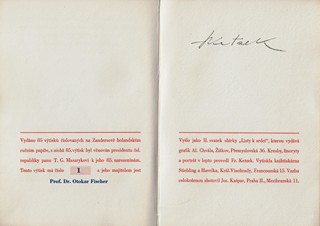 Vydáno 85 výtisků tištěných na Zandersově holandském
ručním papíře, z nichž 85. výtisk byl věnován presidentu čsl.
republiky panu T. G. Masarykovi k jeho 85. narozeninám.
Tento výtisk má číslo 1 a jeho majitelem jest
Prof. Dr. Otokar Fischer
Vyšlo jako II. svazek sbírky „Listy k srdci“, kterou vydává
grafik Al. Chvála, Žižkov, Přemyslovská 36. Kresby, linoryty
a portrét v leptu provedl Fr. Kotrek. Vytiskla knihtiskárna
Stücking a Havelka, Král. Vinohrady, Francouzská 15. Vazbu
celokoženou zhotovil Jos. Kašpar, Praha II., Mezibranská 11.